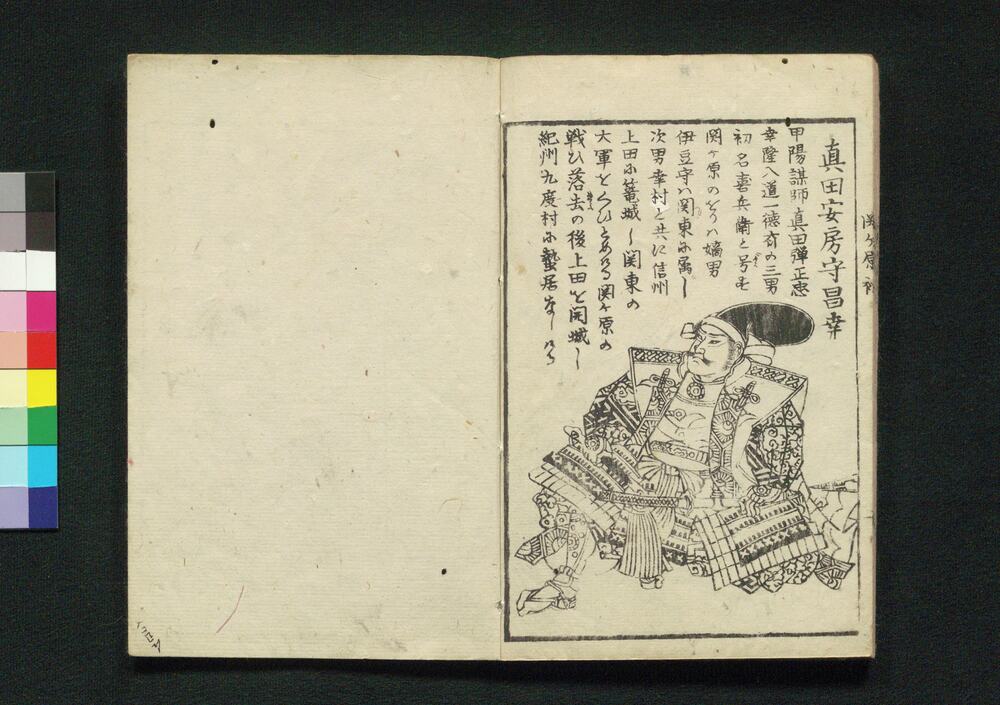 真田安房守昌幸
甲陽謀師真田弾正忠
幸隆入道一徳斎の三男
初名喜兵衛と号す
関ヶ原のとりハ嫡男
伊豆守ハ関東に属し
次男幸村と共に信州
上田に篭城し関東の
大軍をくひとめける関ヶ原の
戦ひ落去の後上田を開城し
紀州九度村に蟄居なしける
関ヶ原